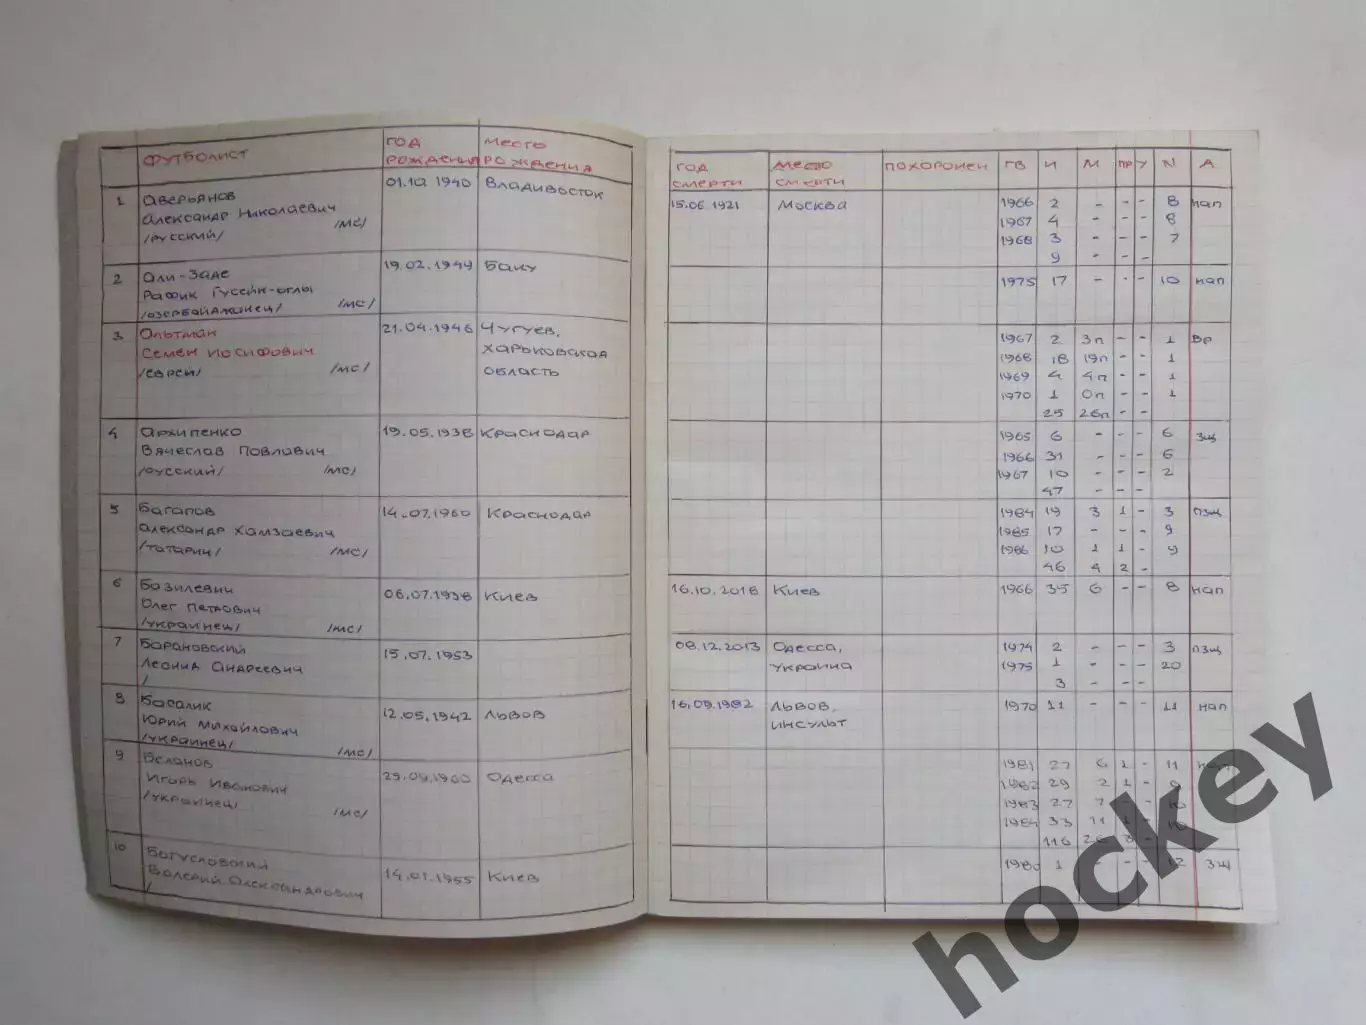 ФУТБОЛИСТ
ГОД РОЖДЕНИЯ
МЕСТО РОЖДЕНИЯ
1 Аверьянов 01.10 1940 Владивосток
Александр Николаевич
/русский/ /МС/
2 Али-Заде 19.02.1949 Баку
Рафик Гусейн-оглы
/азербайджанец/ /МС/
3 Ольтман 21.04.1946 Чугуев,
Семен Иосифович Харьковская
/еврей/ /МС/ область
4 Архипенко 19.05.1938 Краснодар
Вячеслав Павлович
/русский/ /МС/
5 Багапов 14.07.1960 Краснодар
Александр Хамзаевич
/татарин/ /МС/
6 Базилевич 06.07.1938 Киев
Олег Петрович
/украинец/ /МС/
7 Барановский 15.07.1953
Леонид Андреевич
/
8 Басалик 12.05.1942 Львов
Юрий Михайлович
/украинец/ /МС/
9 Беланов 29.09.1960 Одесса
Игорь Иванович
/украинец/
/МС/
10 Богусловский
Валерий Александрович 14.01.1955 Киев
/
ГОД СМЕРТИ
МЕСТО СМЕРТИ
ПОХОРОНЕН ГВ И М ПР У N А
15.06.1921 Москва 1966 2 - - - 8 нап
1967 4 - - - 8
1968 3 - - - 7
9 - - -
1975 17 - - - 10 нап
1967 2 3п - - 1 Вр
1968 18 19п - - 1
1969 4 4п - - 1
1970 1 0п - - 1
25 26п - -
1965 6 - - - 6 зщ
1966 31 - - - 6
1967 10 - - - 2
47 - - -
1984 19 3 1 - 3 пзщ
1985 17 - - - 9
1986 10 1 1 - 9
46 4 2 -
16.10.2018 Киев 1966 35 6 - - 8 нап
08.12.2013 Одесса, 1974 2 - - - 3 пзщ
Украина 1975 1 - - - 20
3 - - -
16.09.1982 Львов, 1970 11 - - - 11 нап
инсульт
1981 27 6 1 - 11 нап
1982 29 2 1 - 9
1983 27 7 - - 10
1984 33 11 1 - 10
116 26 3 -
1980 1 - - 12 зщ
hockey